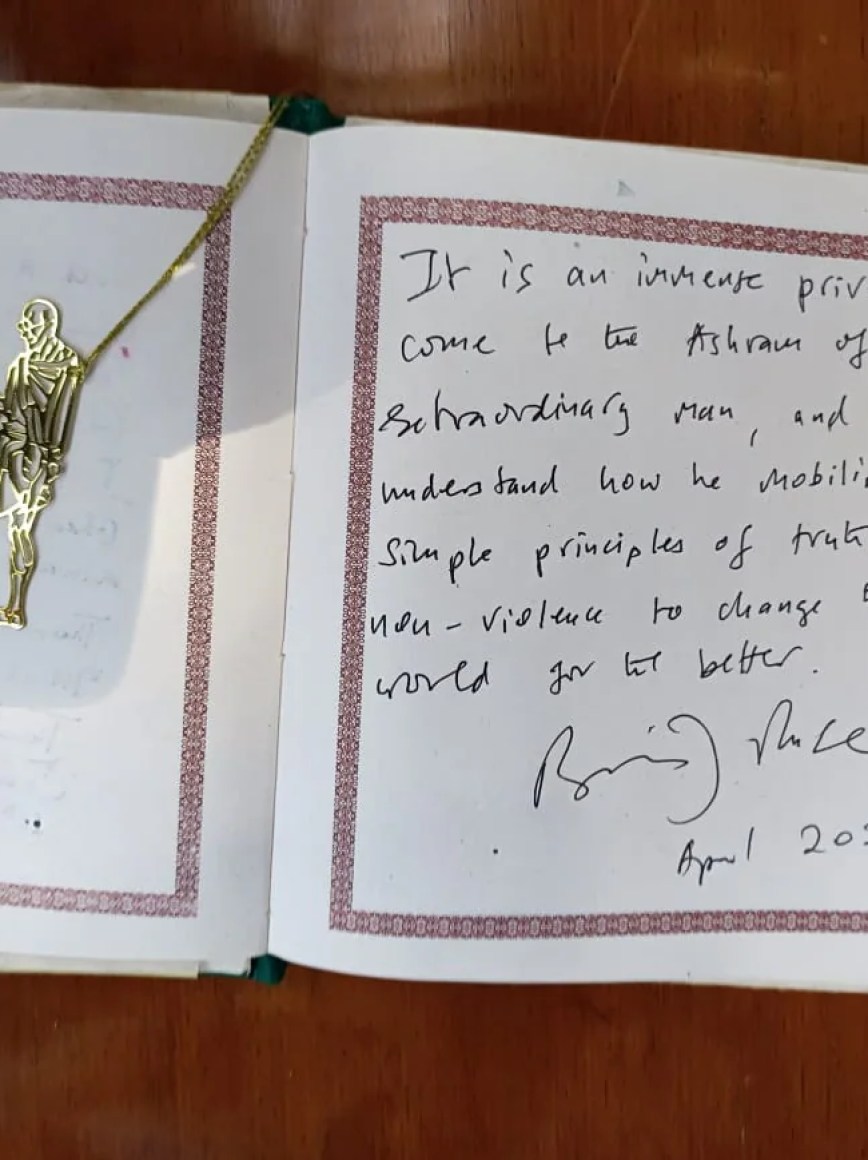 It is an immense priv
come to the Ashram of
extraordinary man, and
understand how he mobili
simple principles of trut
non-violence to change
world for the better.
April 202